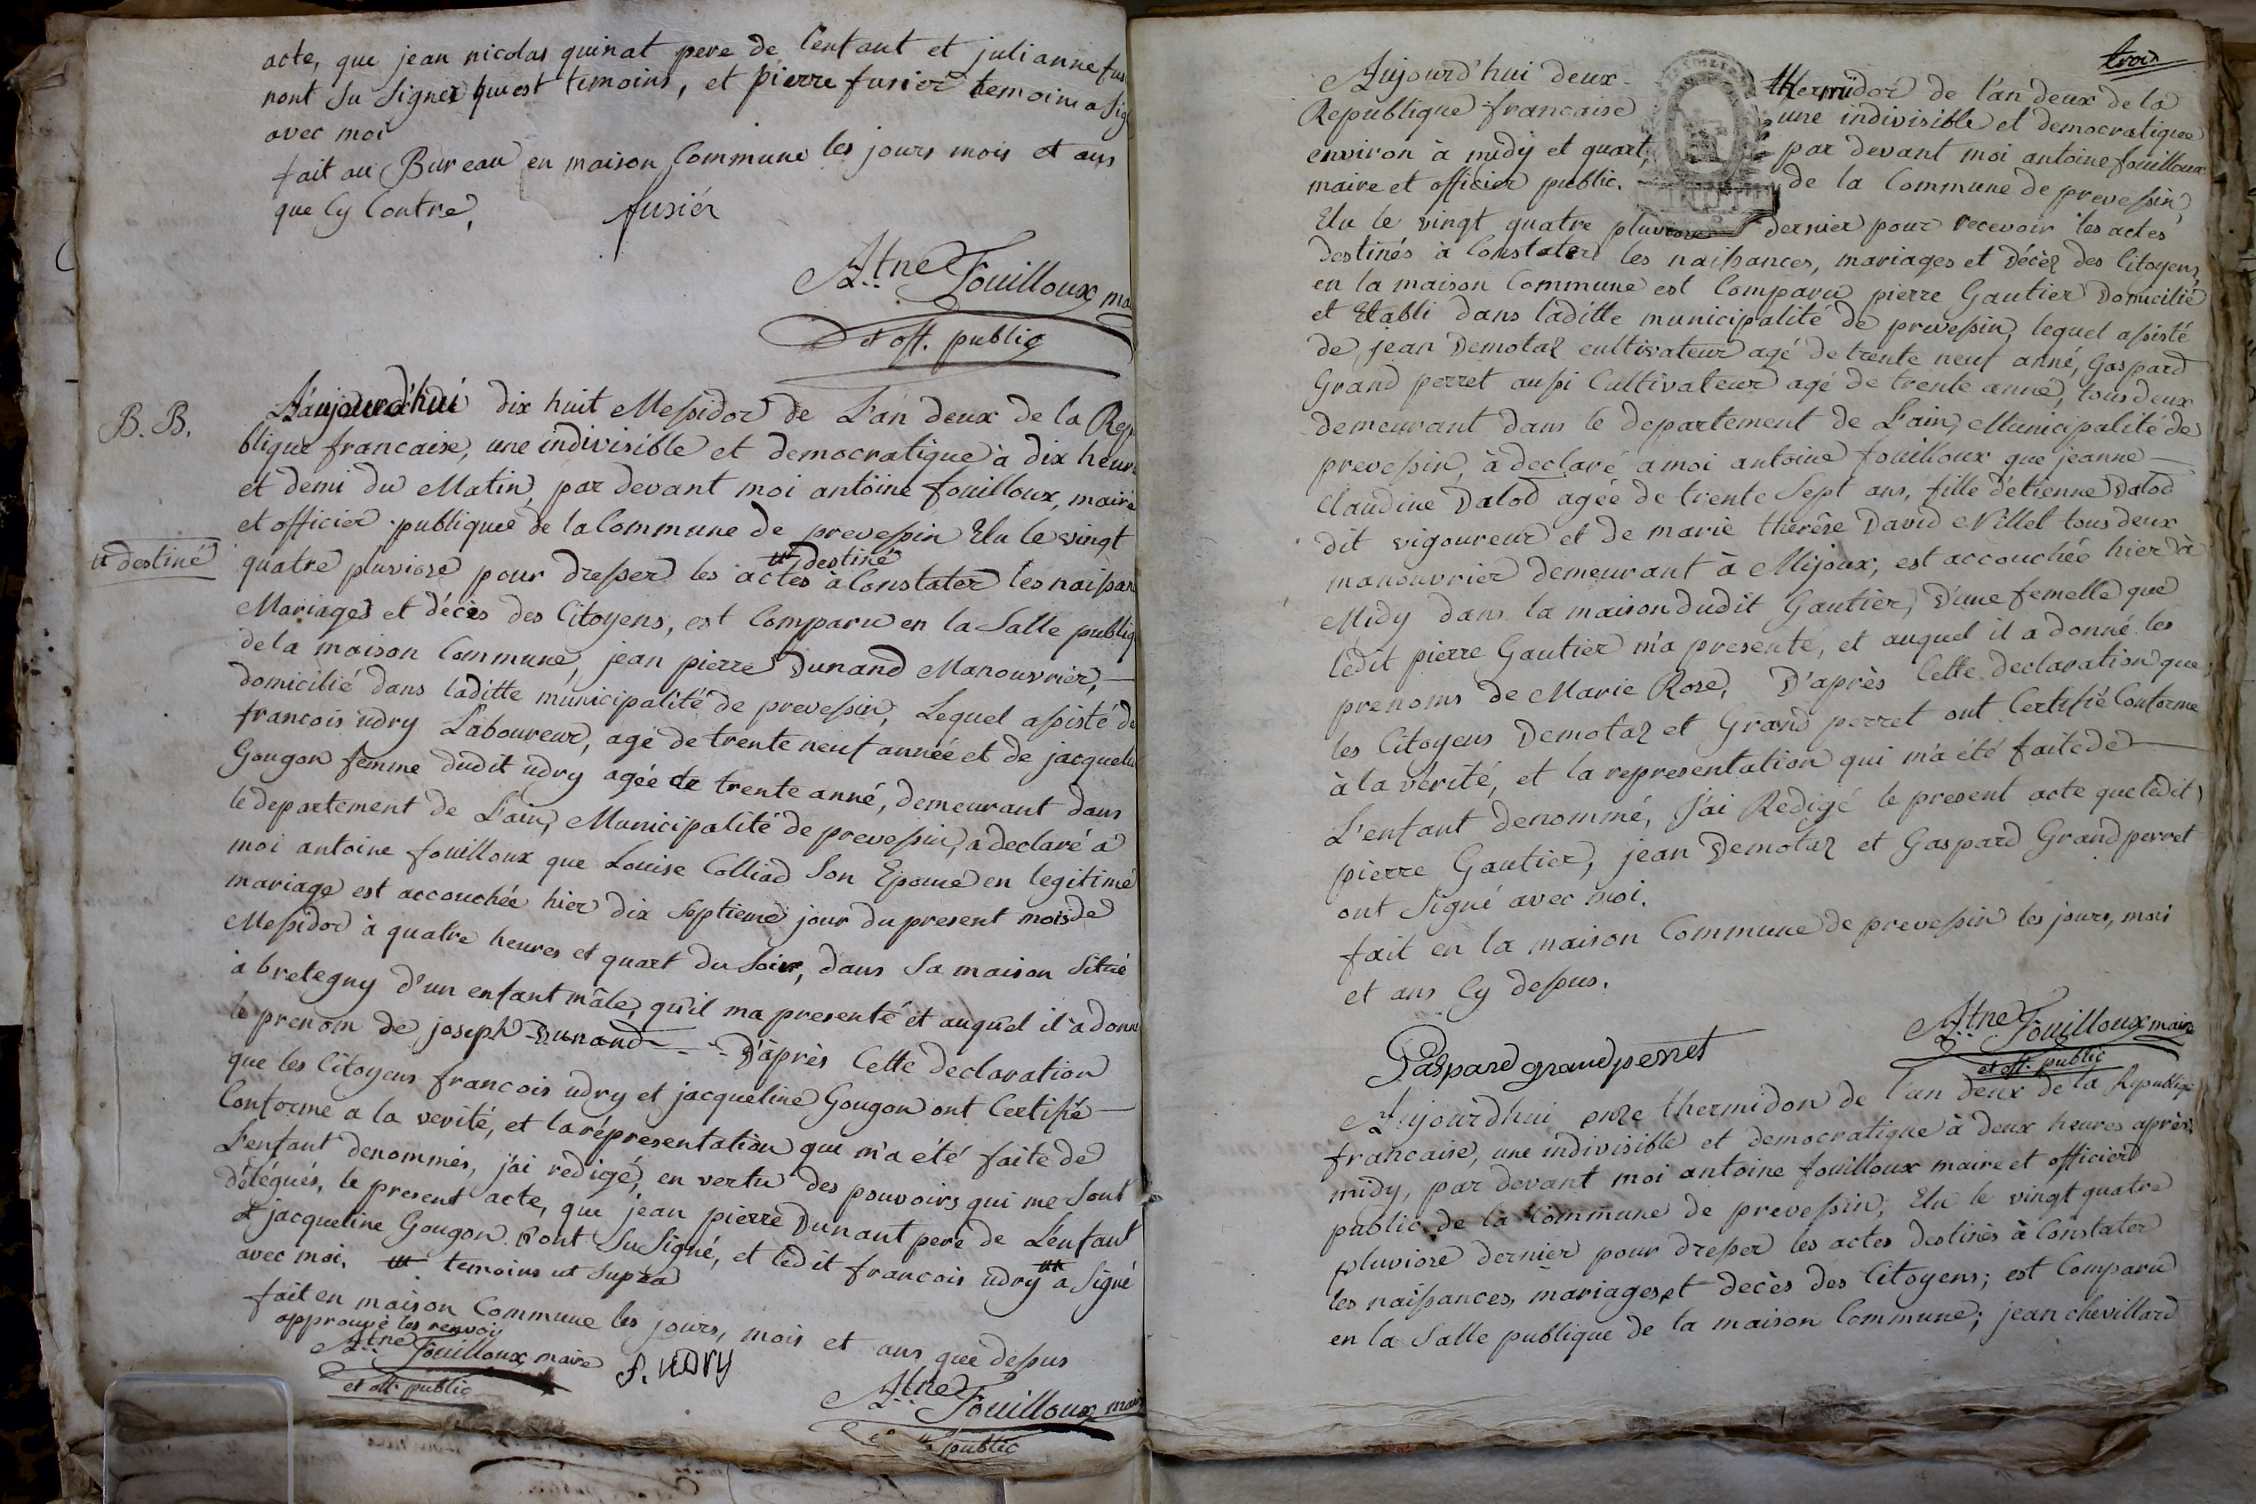 acte, que jean nicolas quinat pere de l'enfant et julianne fus
nont Su Signer quest temoins, et pierre fusier temoin a Sig
avec moi
fait au Bureau en maison Commune les jours mois et ans
que Cy Contre,
fusiér
Atne Fouilloux ma
et off. public
B. B.
L'aujourd'hui dix huit Messidor de L'an deux de la Rep
blique francaise, une indivisible et democratique à dix heur
et demi du Matin, par devant moi antoine fouilloux, maire
et officier publique de la Commune de prevessin Elu le vingt
destiné
destiné
quatre pluviose pour dresser les actes à Constater les naissan
Mariages et décès des Citoyens, est Comparu en la Salle publiq
de la maison Commune, jean pierre Dunand Manouvrier,
domicilié dans laditte municipalité de prevessin, Lequel assisté de
francois udry Laboureur, agé de trente neuf année et de jacquelin
Gougon femme dudit udry agée de trente anné, demeurant dans
le departement de L'ain, Municipalité de prevessin, a declaré a
moi antoine fouilloux que Louise Colliad Son Epouse en legitime
mariage est accouchée hier dix Septieme jour du present mois de
Messidor à quatre heures et quart du Soir, dans Sa maison Situé
à bretegny d'un enfant mâle, qu'il ma presenté et auquel il a donn
le prenom de joseph Dunand D'après Cette declaration
que les Citoyens francois udry et jacqueline Gougon ont Certifié
Conforme a la verité, et la représentation que m'a été faite de
L'enfant denommés, j'ai redigé, en vertu des pouvoirs qui me Sont
délégués, le present acte, que jean pierre Dunant pere de L'enfant
& jacqueline Gougon nont Su Signé, et ledit francois udry a Signé
avec moi. temoins ut Supra
fait en maison Commune les jours, mois et ans que dessus
approuvé les renvoi
Atne Fouilloux maire
et off. public
F. UDRY
Atne Fouilloux mair
public
trois
Aujourd'hui deux thermidor de l'an deux de la
Republique francaise une indivisible et democratique
environ à midy et quart, par devant moi antoine fouilloux
maire et officier public. de la Commune de prevessin,
Elu le vingt quatre pluviose dernier pour recevoir les actes
destinés à Constater les naissances, mariages et décèz des Citoyens,
en la maison Commune est Comparu pierre Gautier Domicilié
et Etabli dans laditte municipalité de prevessin, lequel assisté
de jean Demotaz cultivateur agé de trente neuf anné, Gaspard
Grand perret aussi Cultivateur agé de trente anné, tous deux
demeurant dans le departement de L'ain, Municipalité de
prevessin, à declaré a moi antoine fouilloux que jeanne
Claudine Dalod agée de trente Sept ans, fille d'etienne Dalod
dit vigoureux et de marie therêse David Nillet tous deux
manouvrier demeurant à Mijoux, est accouchée hier à
Midy dans la maison dudit Gautier, D'une femelle que
ledit pierre Gautier m'a presenté, et auquel il a donné les
prenoms de Marie Rose, D'après Cette declaration que
les Citoyens Demotaz et Grand perret ont Certifié Conforme
à la vérité, et la representation qui m'a été faite de
L'enfant denommé, j'ai Redigé le present acte que ledit
pierre Gautier, jean Demotaz et Gaspard Grand perret
ont Signé avec moi.
fait en la maison Commune de prevessin les jours, mois
et ans Cy dessus.
Gaspard grandperret
Atne Fouilloux maire
et off. public
Aujourdhui onze thermidon de l'an deux de la Republiq
francaise, une indivisible et democratique à deux heures après
midy, par devant moi antoine fouilloux maire et officier
public de la Commune de prevessin, Elu le vingt quatre
pluviose dernier pour dresser les actes destinés à Constater
les naissances, mariages, et decès des Citoyens; est Comparu
en la Salle publique de la maison Commune; jean chevillard